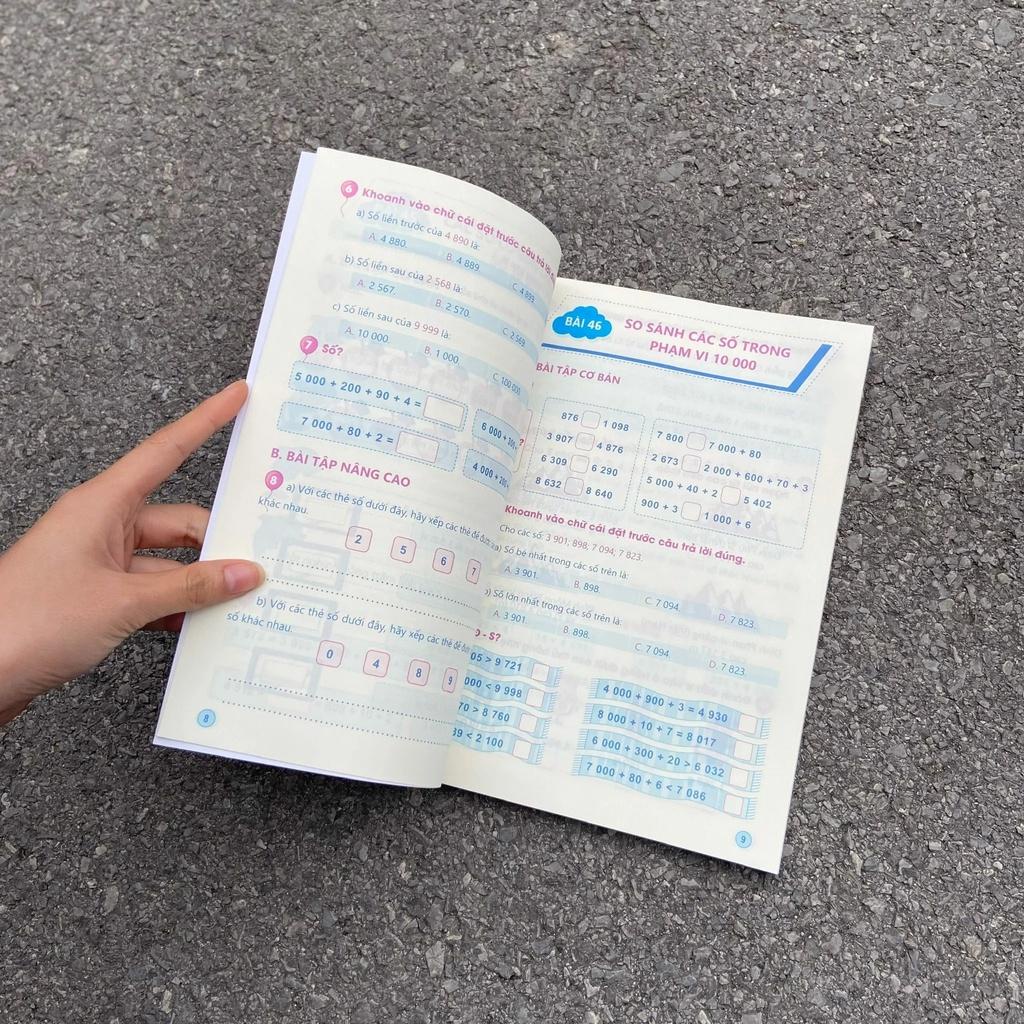 6 Khoanh vào chữ cái đặt trước câu trả lời
a) Số liền trước của 4 890 là:
A. 4 880. B. 4 889. C. 4 899.
b) Số liền sau của 2 568 là:
A. 2 567. B. 2 570. C. 2 569.
c) Số liền sau của 9 999 là:
A. 10 000. B. 1 000. C. 100 000.
7 Số?
5 000 + 200 + 90 + 4 =
6 000 + 300 +
7 000 + 80 + 2 =
4 000 + 200 +
B. BÀI TẬP NÂNG CAO
8 a) Với các thẻ số dưới đây, hãy xếp các thẻ để được
khác nhau.
2 5 6 7
b) Với các thẻ số dưới đây, hãy xếp các thẻ để
số khác nhau.
0 4 8 9
8
BÀI 46 SO SÁNH CÁC SỐ TRONG
PHẠM VI 10 000
BÀI TẬP CƠ BẢN
?
876 1 098
3 907 4 876
6 309 6 290
8 632 8 640
7 800 7 000 + 80
2 673 2 000 + 600 + 70 + 3
5 000 + 40 + 2 5 402
900 + 3 1 000 + 6
Khoanh vào chữ cái đặt trước câu trả lời đúng.
Cho các số: 3 901; 898; 7 094; 7 823.
a) Số bé nhất trong các số trên là:
A. 3 901. B. 898. C. 7 094. D. 7 823.
) Số lớn nhất trong các số trên là:
A. 3 901. B. 898. C. 7 094. D. 7 823.
- S?
05 > 9 721
000 < 9 998
70 > 8 760
39 < 2 100
4 000 + 900 + 3 = 4 930
8 000 + 10 + 7 = 8 017
6 000 + 300 + 20 > 6 032
7 000 + 80 + 6 < 7 086
9